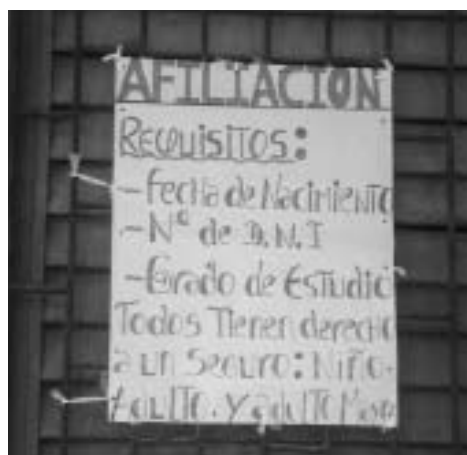 AFILIACION
REQUISITOS:
-Fecha de Nacimiento
-Nº de D.N.I
-Grado de Estudio
Todos Tienen derecho
a un Seguro: Niño.
y adulto